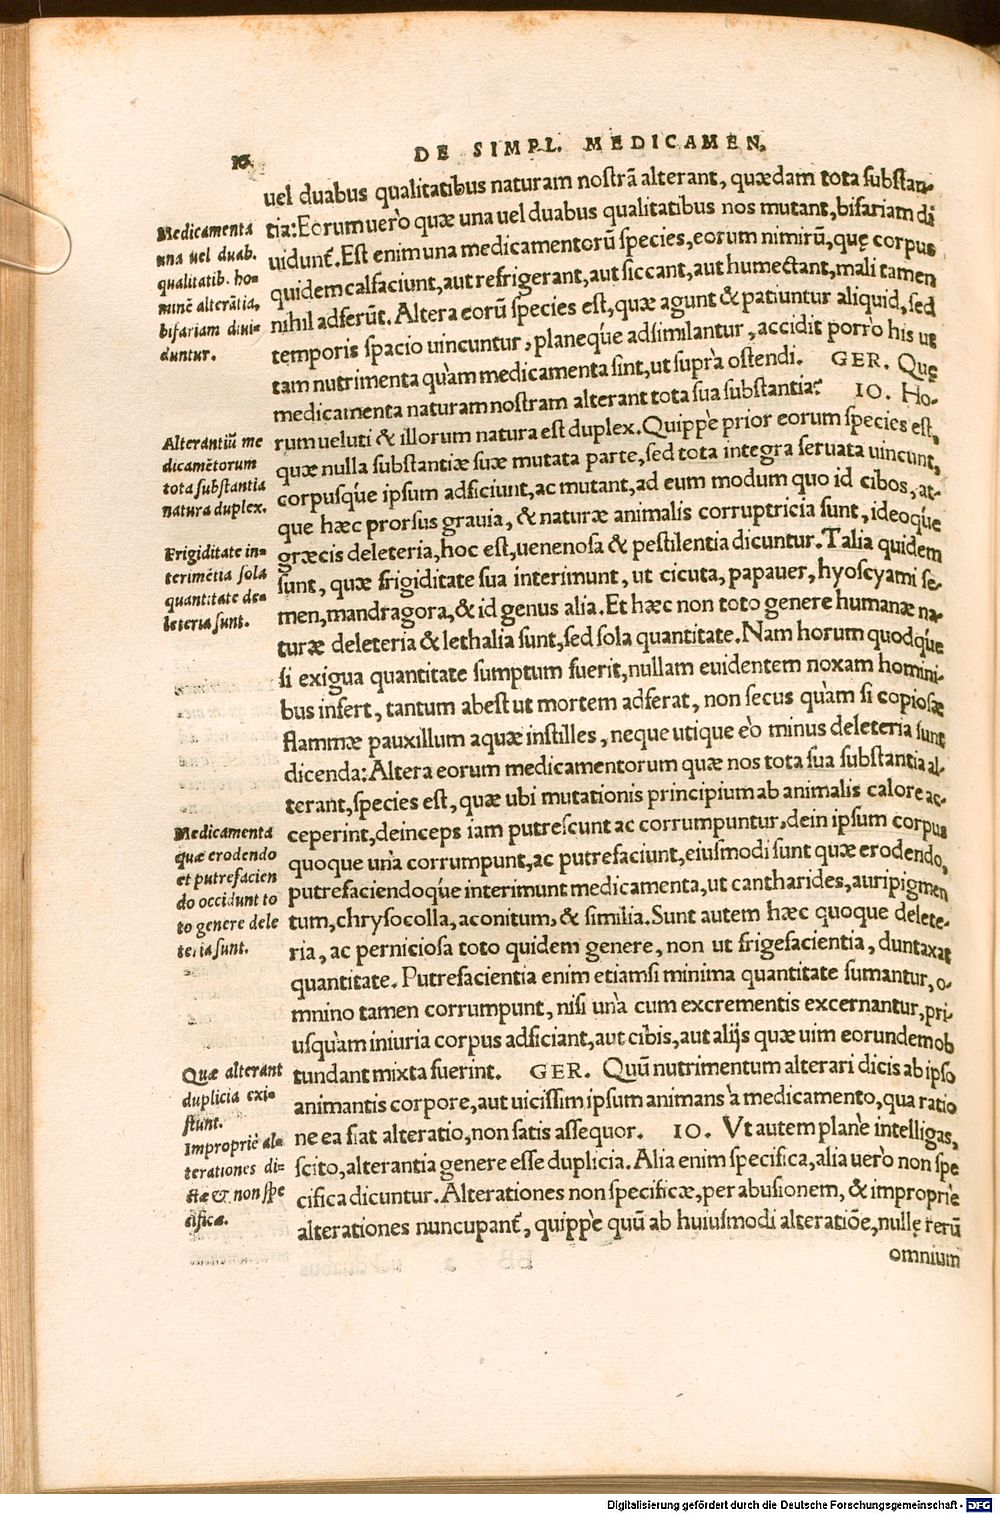 DE SIMPL. MEDICAMEN.
uel duabus qualitatibus naturam nostrā alterant, quædam tota substan-
tia: Eorum uerò quæ una uel duabus qualitatibus nos mutant, bifariam di
uidunt̃. Est enim una medicamentorũ species, eorum nimirũ, quę corpus
quidem calfaciunt, aut refrigerant, aut siccant, aut humectant, mali tamen
nihil adferũt. Altera eorũ species est, quæ agunt & patiuntur aliquid, sed
temporis spacio uincuntur, planeq́ue adsimilantur, accidit porro his ut
tam nutrimenta quàm medicamenta sint, ut suprà ostendi. GER. Quę
medicamenta naturam nostram alterant tota sua substantia? IO. Ho-
rum ueluti & illorum natura est duplex. Quippè prior eorum species est,
quæ nulla substantiæ suæ mutata parte, sed tota integra seruata uincunt,
corpusq́ue ipsum adficiunt, ac mutant, ad eum modum quo id cibos, at-
que hæc prorsus grauia, & naturæ animalis corruptricia sunt, ideoq́ue
græcis deleteria, hoc est, uenenosa & pestilentia dicuntur. Talia quidem
sunt, quæ frigiditate sua interimunt, ut cicuta, papauer, hyoscyami se-
men, mandragora, & id genus alia. Et hæc non toto genere humanæ na-
turæ deleteria & lethalia sunt, sed sola quantitate. Nam horum quodq́ue
si exigua quantitate sumptum fuerit, nullam euidentem noxam homini-
bus infert, tantum abest ut mortem adferat, non secus quàm si copiosæ
flammæ pauxillum aquæ instilles, neque utique eò minus deleteria sunt
dicenda: Altera eorum medicamentorum quæ nos tota sua substantia al-
terant, species est, quæ ubi mutationis principium ab animalis calore ac-
ceperint, deinceps iam putrescunt ac corrumpuntur, dein ipsum corpus
quoque unà corrumpunt, ac putrefaciunt, eiusmodi sunt quæ erodendo,
putrefaciendoq́ue interimunt medicamenta, ut cantharides, auripigmen
tum, chrysocolla, aconitum, & similia. Sunt autem hæc quoque delete-
ria, ac perniciosa toto quidem genere, non ut frigefacientia, duntaxat
quantitate. Putrefacientia enim etiamsi minima quantitate sumantur, o-
mnino tamen corrumpunt, nisi unà cum excrementis excernantur, pri-
usquàm iniuria corpus adficiant, aut cibis, aut alijs quæ uim eorundem ob
tundant mixta fuerint. GER. Quũ nutrimentum alterari dicis ab ipso
animantis corpore, aut uicissim ipsum animans à medicamento, qua ratio
ne ea fiat alteratio, non satis assequor. IO. Vt autem planè intelligas,
scito, alterantia genere esse duplicia. Alia enim specifica, alia uerò non spe
cifica dicuntur. Alterationes non specificæ, per abusionem, & impropriè
alterationes nuncupant̃, quippè quũ ab huiusmodi alteratiõe, nullę rerũ
omnium
Medicamenta
una uel duab.
qualitatib. ho-
minẽ alterãtia,
bifariam diui-
duntur.
Alterantiũ me
dicamẽtorum
tota substantia
natura duplex.
Frigiditate in-
terimẽtia sola
quantitate de-
leteria sunt.
Medicamenta
quæ erodendo
et putrefacien
do occidunt to
to genere dele
teria sunt.
Quæ alterant
duplicia exi-
stunt.
Impropriè al-
terationes di-
ctæ & non spe
cificæ.
Digitalisierung gefördert durch die Deutsche Forschungsgemeinschaft - DFG